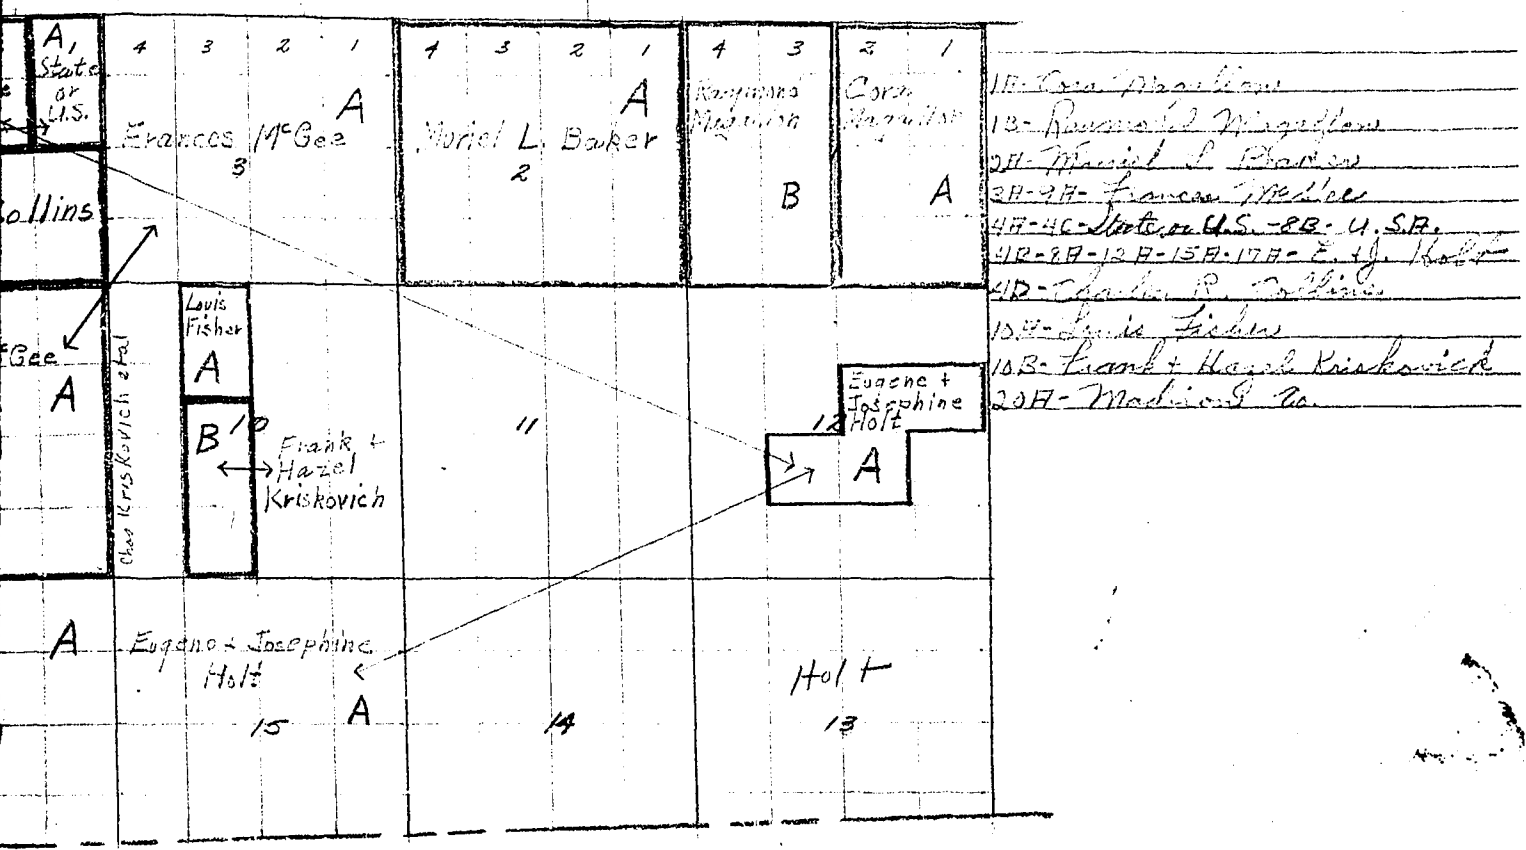 A,
State
or
U.S.
4 3 2 1
A
Frances McGee
3
4 3 2 1
A
Muriel L. Baker
2
4 3
Raymond
B
2 1
Cora
A
ollins
Gee
A
Chas Kriskovich etal
Louis
Fisher
A
B
10
Frank +
Hazel
Kriskovich
11
12
Eugene +
Josephine
Holt
A
A
Eugene + Josephine
Holt
A
15
14
Holt
13
1A- Cora
1B- Raymond
2A- Muriel L Baker
3A-9A- Frances McGee
4A-4C- State or U.S. -8B- U.S.A.
4B-8A-12A-15A-17A- E. + J. Holt
4D- Charles R. Collins
10A- Louis Fisher
10B- Frank + Hazel Kriskovich
20A- Madison Co.